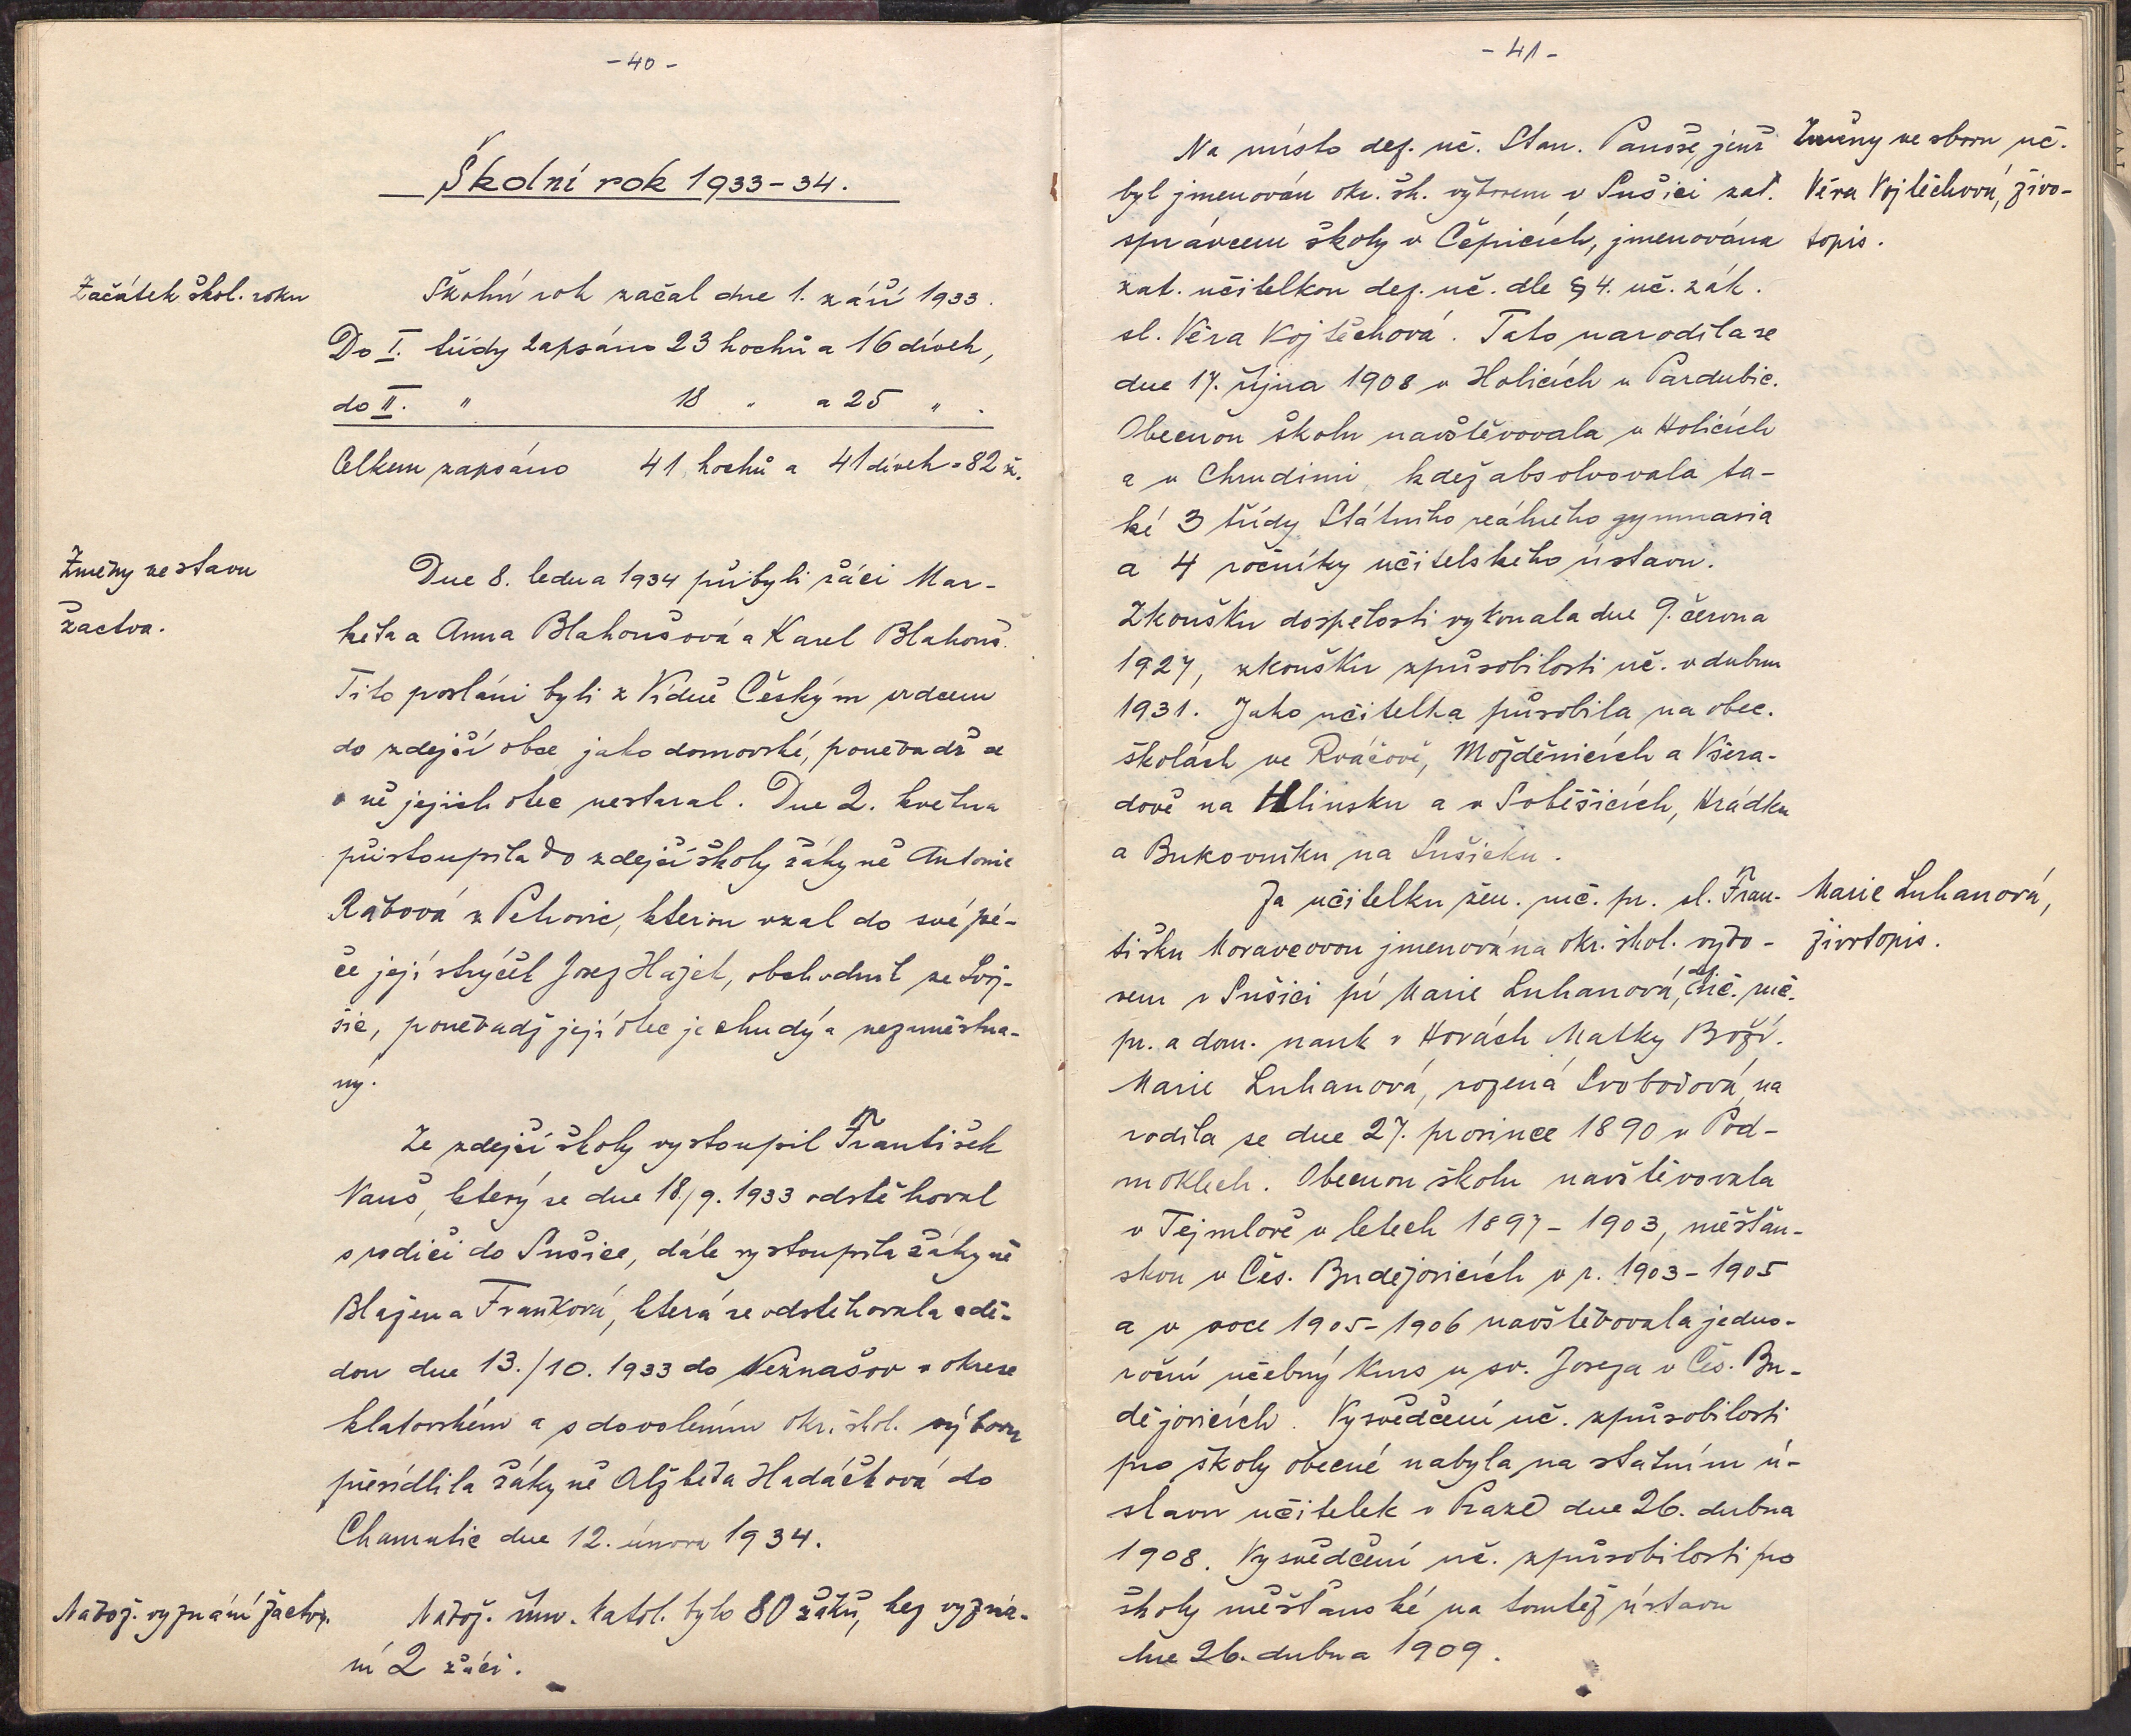 -40-
Školní rok 1933-34.
Začátek škol. roku
Školní rok začal dne 1. září 1933.
Do I. třídy zapsáno 23 hochů a 16 dívek,
do II. " 18 " a 25 " .
Celkem zapsáno 41 hochů a 41 dívek = 82 ž.
Změny ve stavu
žactva.
Dne 8. ledna 1934 přibyli žáci Mar-
keta a Anna Blahoušová a Karel Blahouš.
Tito posláni byli z Vídně Českým srdcem
do zdejší obce jako domovské, poněvadž se
o ně jejich otec nestaral. Dne 2. května
přistoupila do zdejší školy žákyně Antonie
Rabová z Petrovic, kterou vzal do své pé-
če její strýček Josef Hajek, obchodník ze Svoj-
šic, poněvadž její otec je chudý a nezaměstna-
ný.
Ze zdejší školy vystoupil František
Vaňš, který se dne 18./9. 1933 odstěhoval
s rodiči do Sušice, dále vystoupila žákyně
Blažena Franková, která se odstěhovala s dě-
dou dne 13./10. 1933 do Neznašov v okrese
klatovském a s dovolením okr. škol. výboru
přesídlila žákyně Alžběta Hadáčková do
Chamutic dne 12. února 1934.
Nábož. vyznání žactva.
Nábož. řím. katol. bylo 80 žáků, bez vyzná-
ní 2 žáci.
-41-
Změny ve sboru uč.
Věra Vojtěchová, živo-
topis.
Na místo def. uč. Stan. Panoše, jenž
byl jmenován okr. šk. výborem v Sušici zat.
správcem školy v Čepicích, jmenována
zat. učitelkou def. uč. dle § 4. uč. zák.
sl. Věra Vojtěchová. Tato narodila se
dne 17. října 1908 v Holicích u Pardubic.
Obecnou školu navštěvovala v Holicích
a v Chrudimi, kdež absolvovala ta-
ké 3 třídy Státního reálného gymnasia
a 4 ročníky učitelského ústavu.
Zkoušku dospělosti vykonala dne 9. června
1927, zkoušku způsobilosti uč. v dubnu
1931. Jako učitelka působila na obec.
školách ve Rváčově, Možděnicích a Všera-
dově na Hlinsku a v Soběšicích, Hrádku
a Bukovníku na Sušicku.
Marie Luhanová,
životopis.
Za učitelku žen. ruč. pr. sl. Fran-
tišku Moravcovou jmenována okr. škol. výbo-
rem v Sušici pí Marie Luhanová, def. uč. ruč.
pr. a dom. nauk v Horách Matky Boží.
Marie Luhanová, rozená Svobodová, na
rodila se dne 27. prosince 1890 v Pod-
moklech. Obecnou školu navštěvovala
v Tejmlově v letech 1897-1903, měšťan-
skou v Čes. Budějovicích v r. 1903-1905
a v roce 1905-1906 navštěvovala jedno-
roční učebný kurs u sv. Josefa v Čes. Bu-
dějovicích. Vysvědčení uč. způsobilosti
pro školy obecné nabyla na státním ú-
stavu učitelek v Praze dne 26. dubna
1908. Vysvědčení uč. způsobilosti pro
školy měšťanské na tomtéž ústavu
dne 26. dubna 1909.